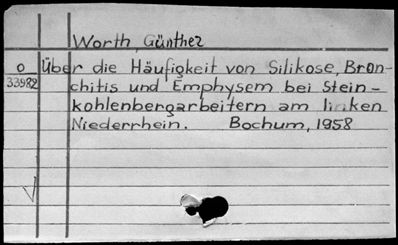 Worth, Günther
O
33982
Über die Häufigkeit von Silikose, Bron-
chitis und Emphysem bei Stein-
kohlenbergarbeitern am linken
Niederrhein. Bochum, 1958